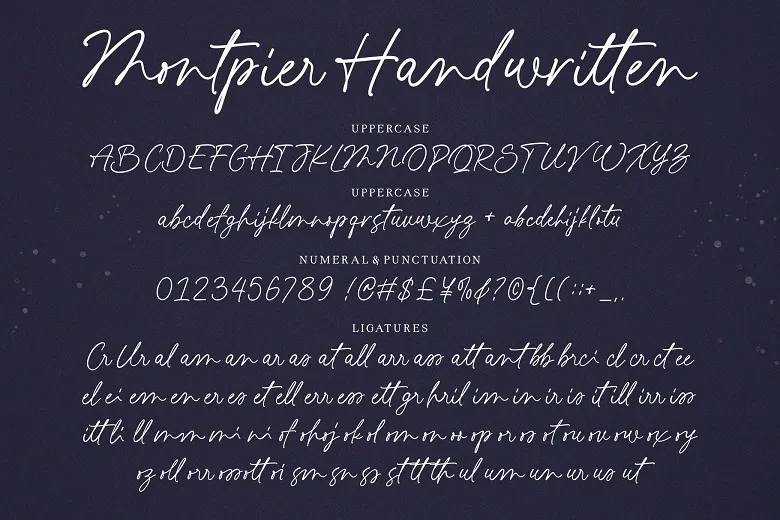 Montpier Handwritten
UPPERCASE
ABCDEFGHIJKLMNOPQRSTUVWXYZ
UPPERCASE
abcdefghijklmnopqrstuvwxyz + abcdehijklotu
NUMERAL & PUNCTUATION
0123456789 !@#$£¥%&?©{[(:;+_,.
LIGATURES
Cr Ur al am an ar as at all arr ass att ant bb br ci cl cr ct ee
el ei em en er es et ell err ess ett gr hr il im in ir is it ill irr iss
itt li ll mm mi ni of oh oj ok ol om on oo op or os ot ou ov ow ox oy
oz oll orr oss ott oi sm sn ss st tt th ul um un ur us ut